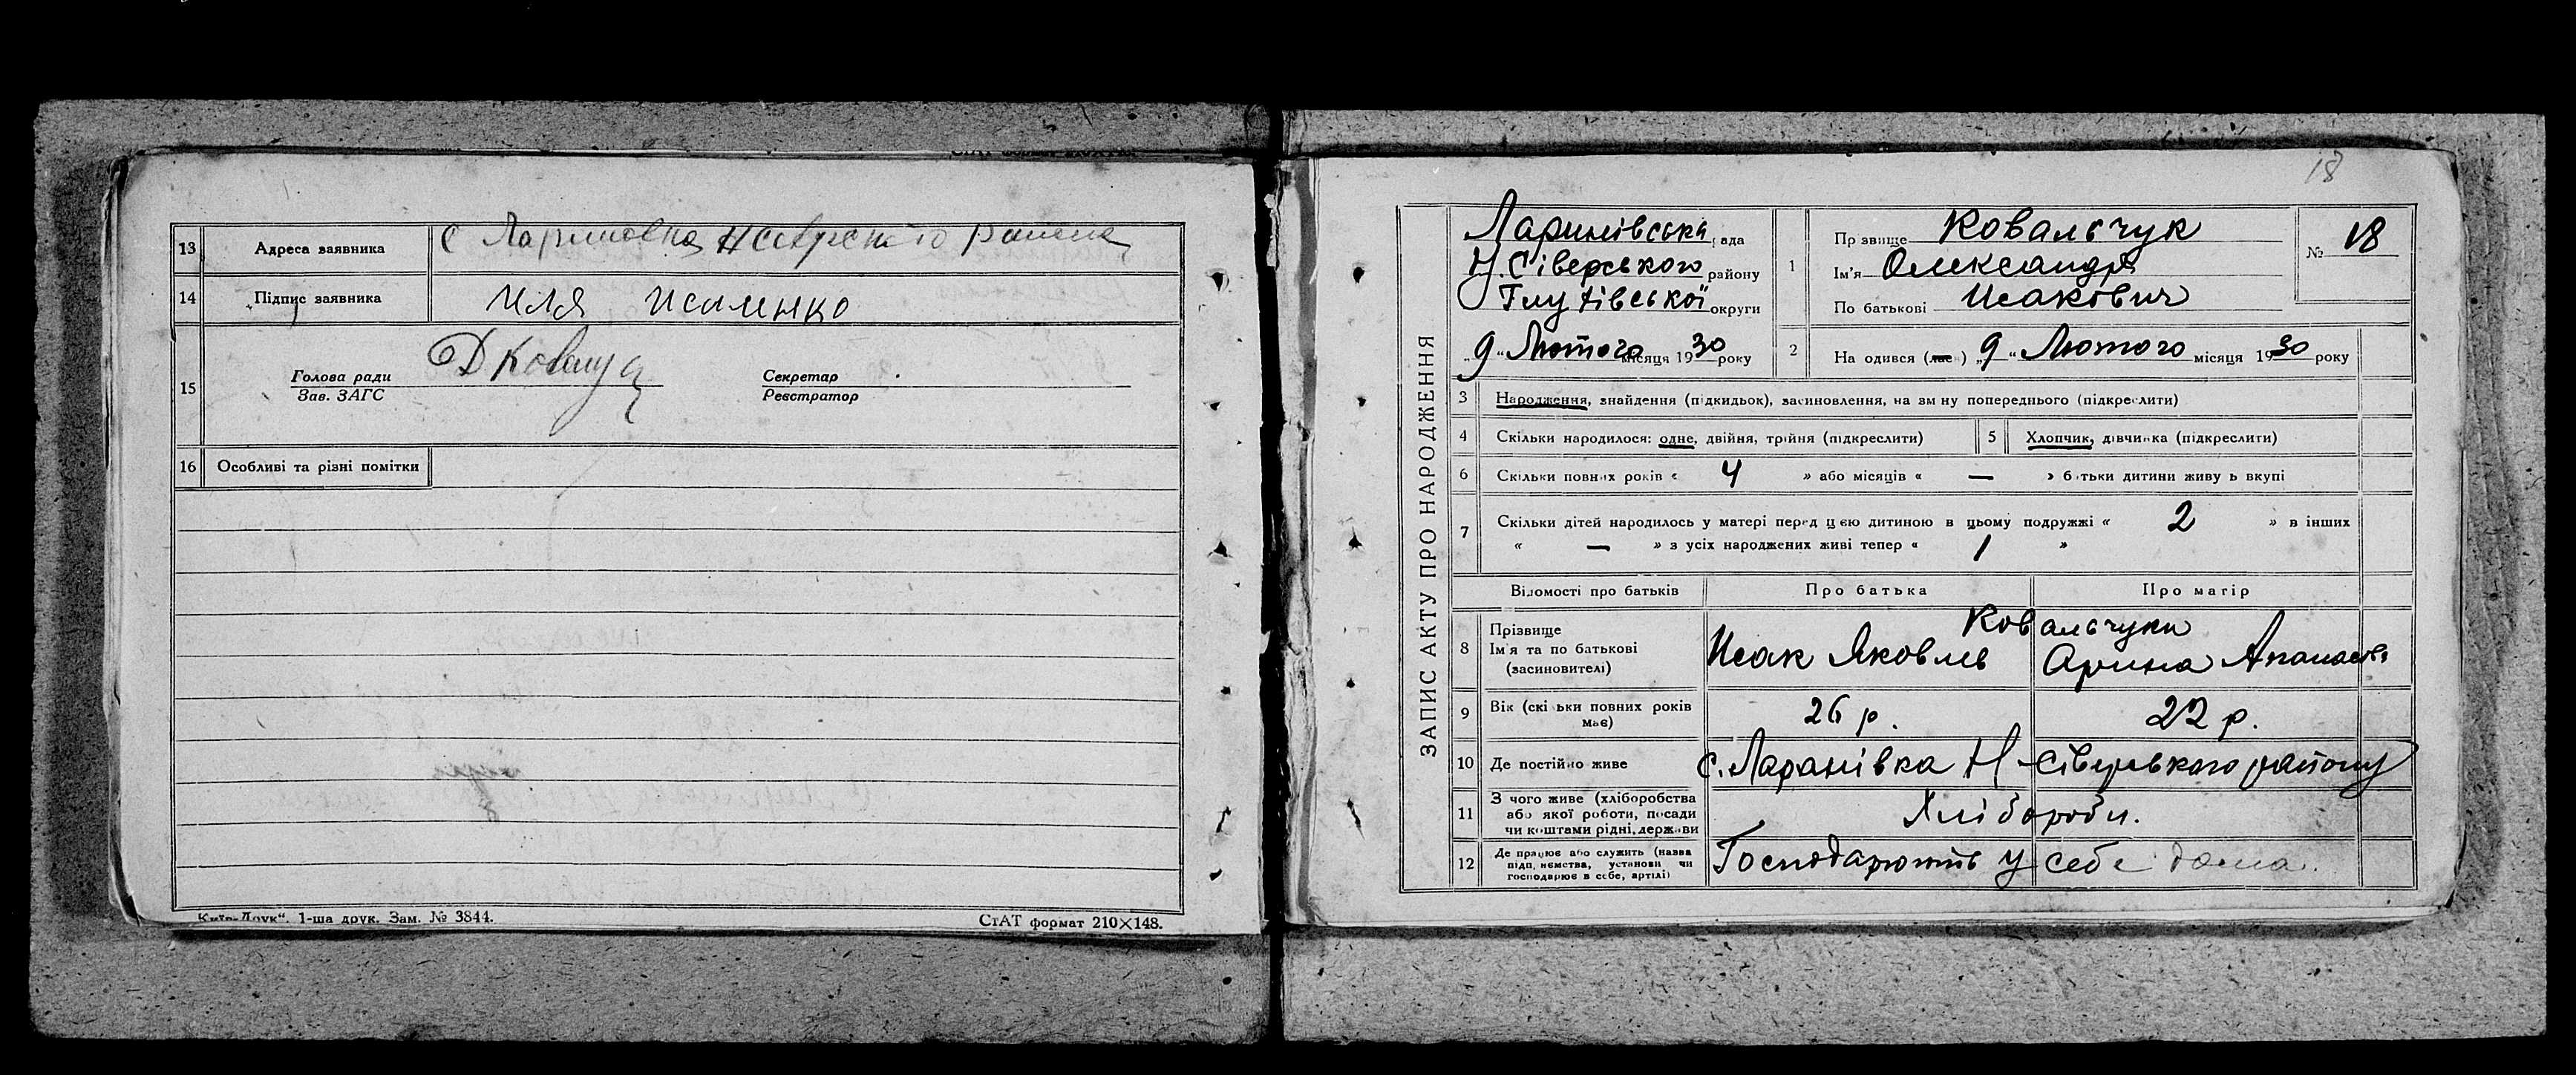 13 Адреса заявника с Лариновка
14 Підпис заявника Иля
15 Голова ради Секретар
Зав. ЗАГС Реєстратор
16 Особливі та різні помітки
Київ-Друк“. 1-ша друк. Зам. № 3844. СтАТ формат 210×148.
18
ЗАПИС АКТУ ПРО НАРОДЖЕННЯ
Ларинівська рада
Н. Сіверського району
Глухівської округи
„9“ Лютого місяця 1930 року
1 Прізвище Ковальчук
Ім'я Олександр
По батькові Исакович
№ 18
2 Народився (лась) „9“ Лютого місяця 1930 року
3 Народження, знайдення (підкидьок), засиновлення, на зміну попереднього (підкреслити)
4 Скільки народилося: одне, двійня, трійня (підкреслити) 5 Хлопчик, дівчинка (підкреслити)
6 Скільки повних років « 4 » або місяців « — » батьки дитини живуть вкупі
7 Скільки дітей народилось у матері перед цією дитиною в цьому подружжі « 2 » в інших
« — » з усіх народжених живі тепер « 1 »
Відомості про батьків Про батька Про матір
8 Прізвище
Ім'я та по батькові
(засиновителі)
Ковальчуки
Исак Яковлв Арина
9 Вік (скільки повних років
має) 26 р. 22 р.
10 Де постійно живе с. Ларанівка Н-Сіверського району
11 З чого живе (хліборобства
або якої роботи, посади
чи коштами рідні, держави
Хлібороби.
12 Де працює або служить (назва
підприємства, установи чи
господарює в себе, артілі)
Господарюють у себе дома.